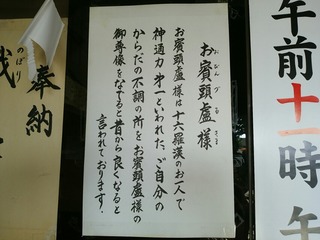 お賓頭盧様
おびんづるさま
お賓頭盧様は十六羅漢のお一人で
神通力第一といわれた、ご自分の
からだの不調の所をお賓頭盧様の
御尊像をなでると昔から良くなると
言われております.
午前十一時 午
奉納
のぼり